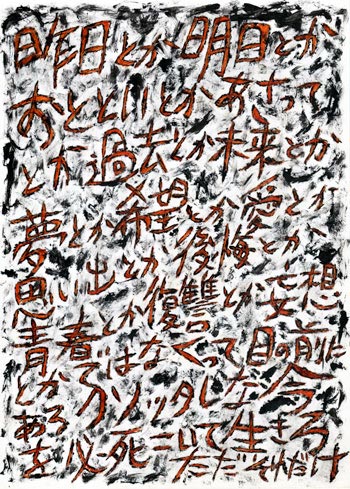 昨日とか明日とか
おとといとかあさって
とか過去とか未来とか
夢とか希望とか愛とか
後悔とか
思い出とか復讐とか妄想
青春とかではなくって目の前に
あるクソッタレな今
を必死こいて生きろ
ただそれだけ